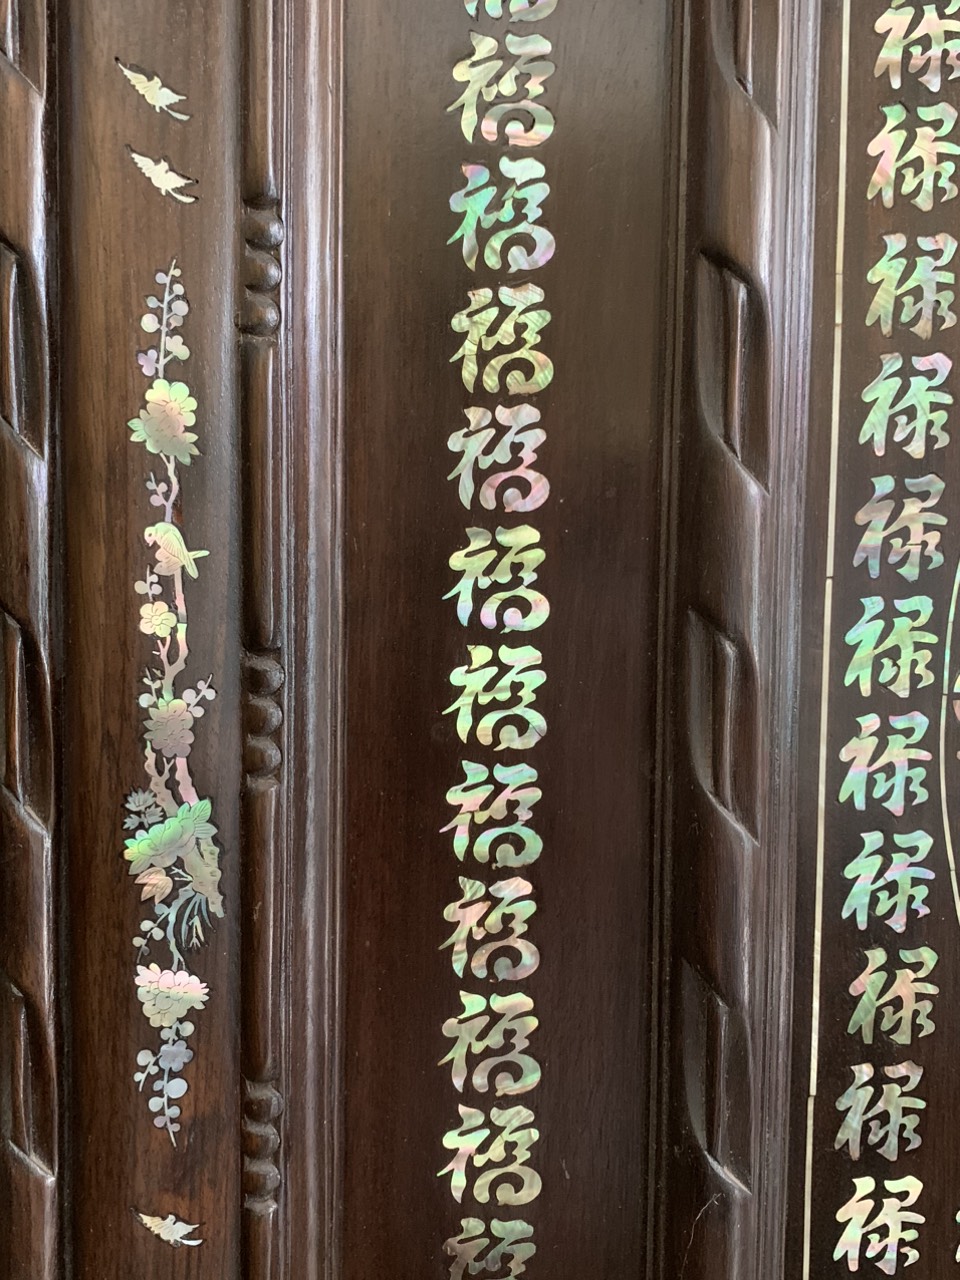 禄禄禄禄禄禄禄禄禄禄禄
福福福福福福福福福福福